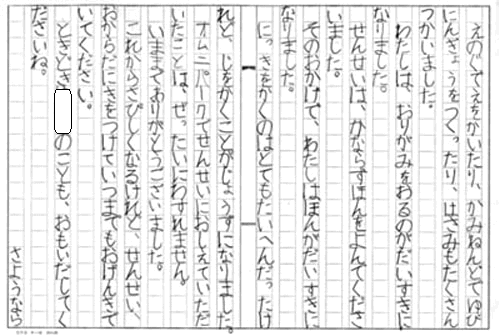 えのぐでえをかいたり、かみねんどでゆび
にんぎょうをつくったり、はさみもたくさん
つかいました。
わたしは、おりがみをおるのがだいすきに
なりました。
せんせいは、かならずほんをよんでくださ
いました。
そのおかげで、わたしはほんがだいすきに
なりました。
にっきをかくのはとてもたいへんだったけ
れど、じをかくことがじょうずになりました。
オムニパークでせんせいにおしえていただ
いたことは、ぜったいにわすれません。
いままでありがとうございました。
これからさびしくなるけれど、せんせい、
おからだにきをつけていつまでもおげんきで
いてください。
ときどき のことも、おもいだしてく
ださいね。
さようなら